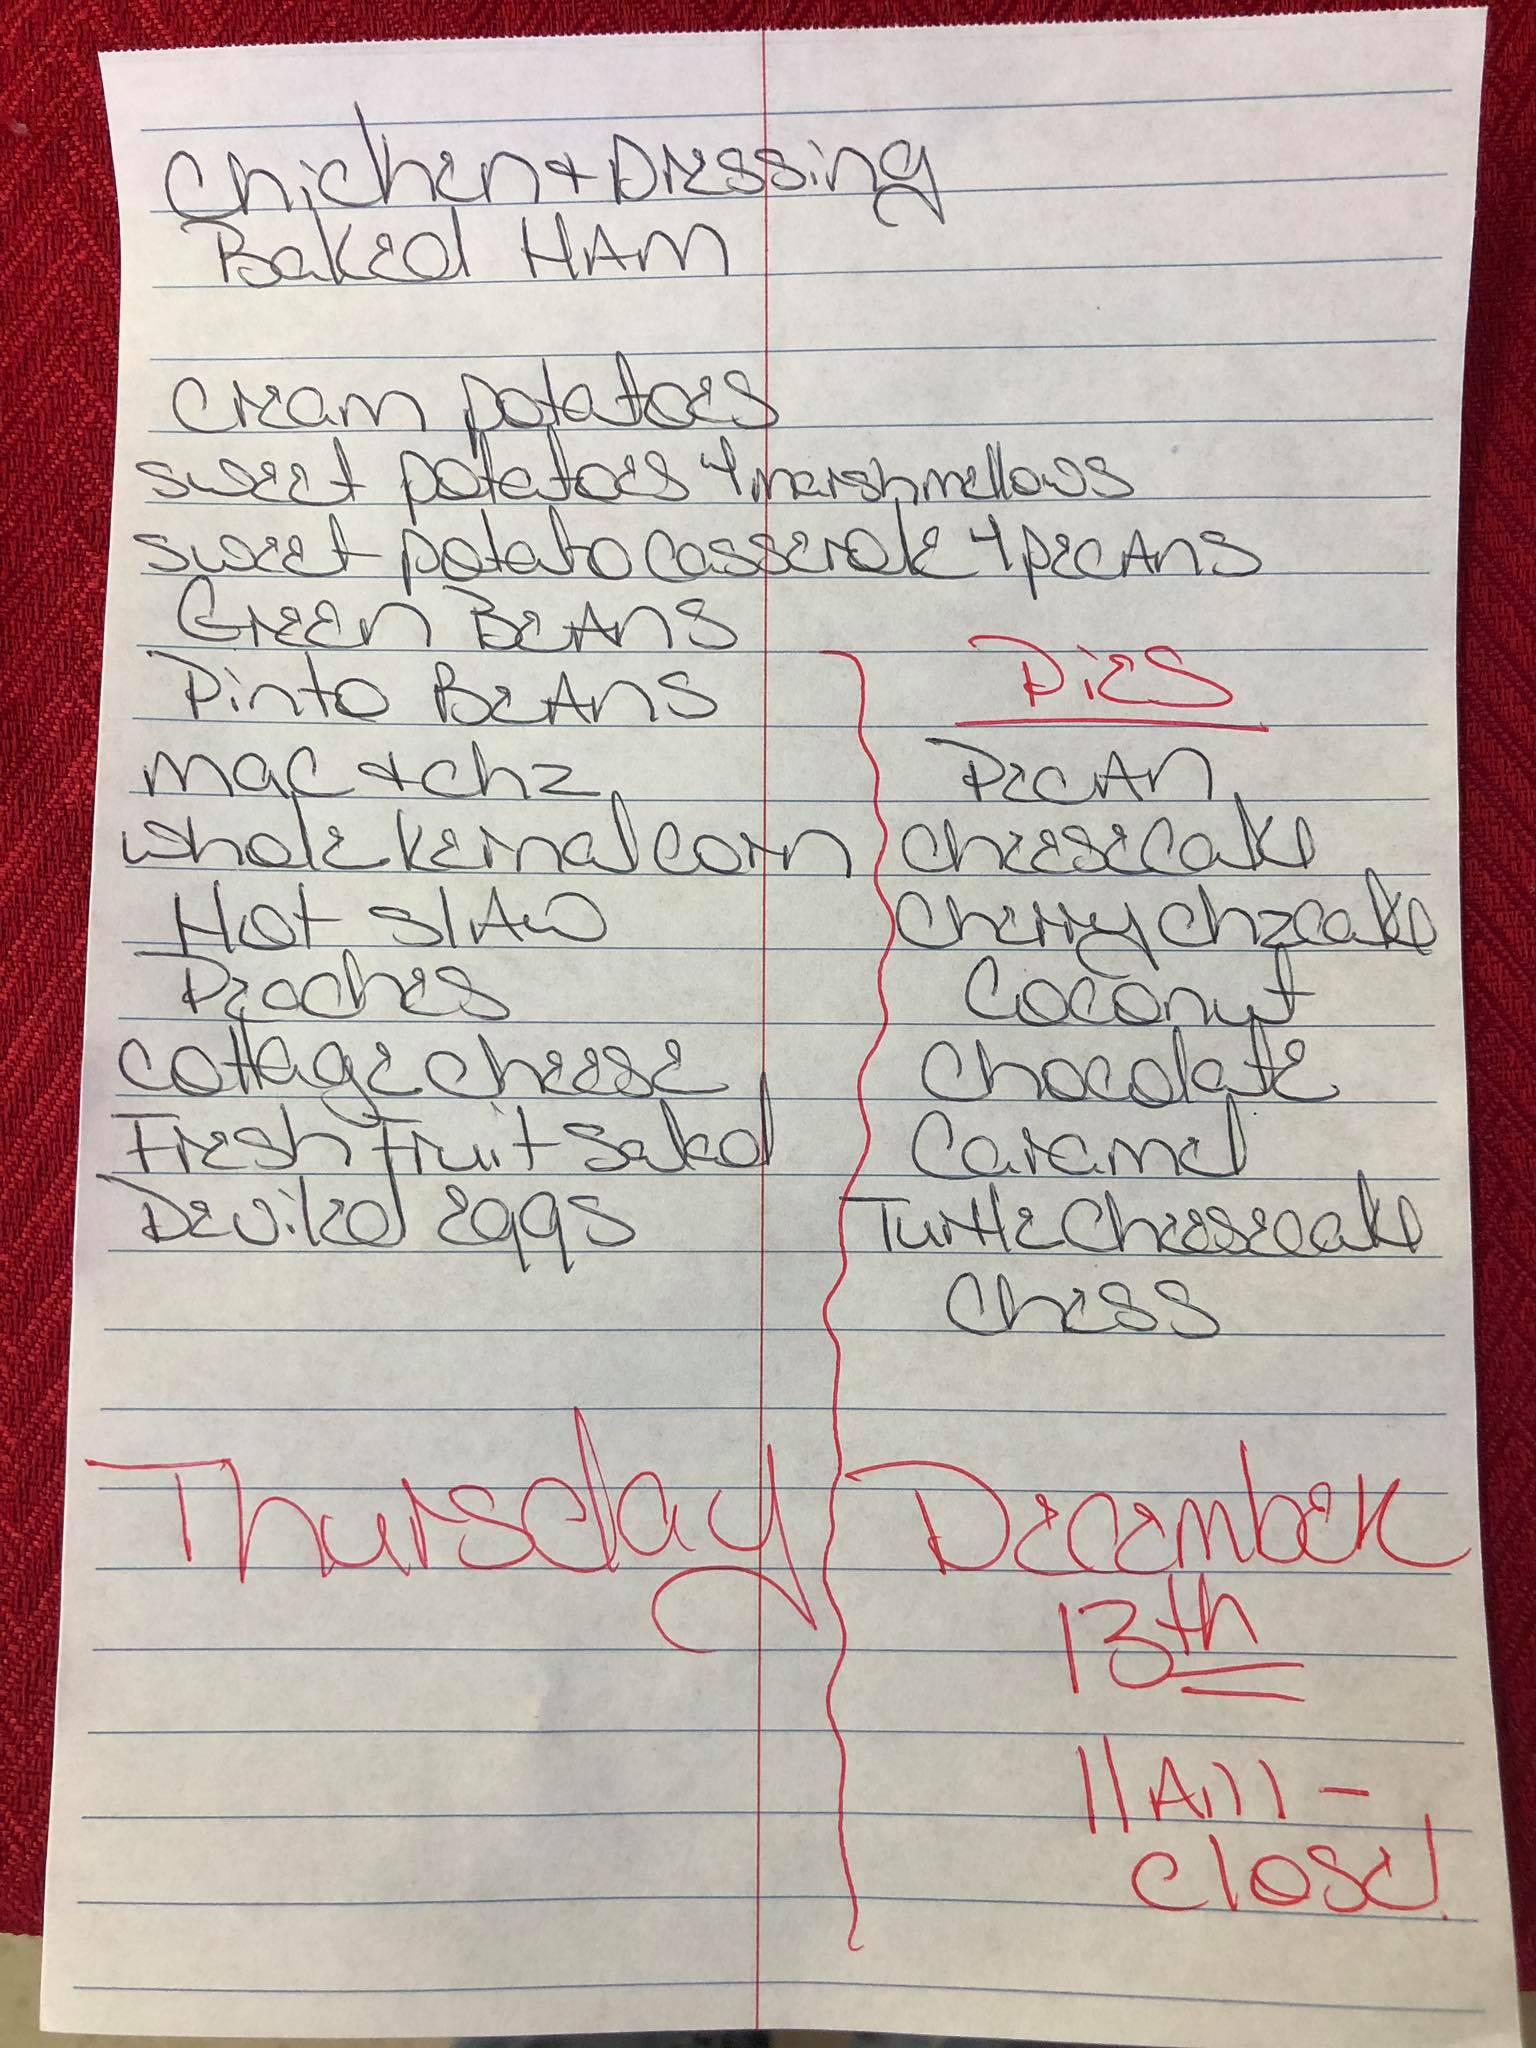 Chicken + Dressing
Baked HAM
Cream potatoes
sweet potatoes + marshmellows
sweet potato casserole + pecans
Green Beans
Pinto Beans
mac + chz
whole kernal corn
Hot slaw
Peaches
cottage cheese
Fresh Fruit Salad
Deviled eggs
Pies
Pecan
cheesecake
Cherry chzcake
Coconut
Chocolate
Caramel
Turtle Cheesecake
Chess
Thursday
December
13th
11 Am -
close!